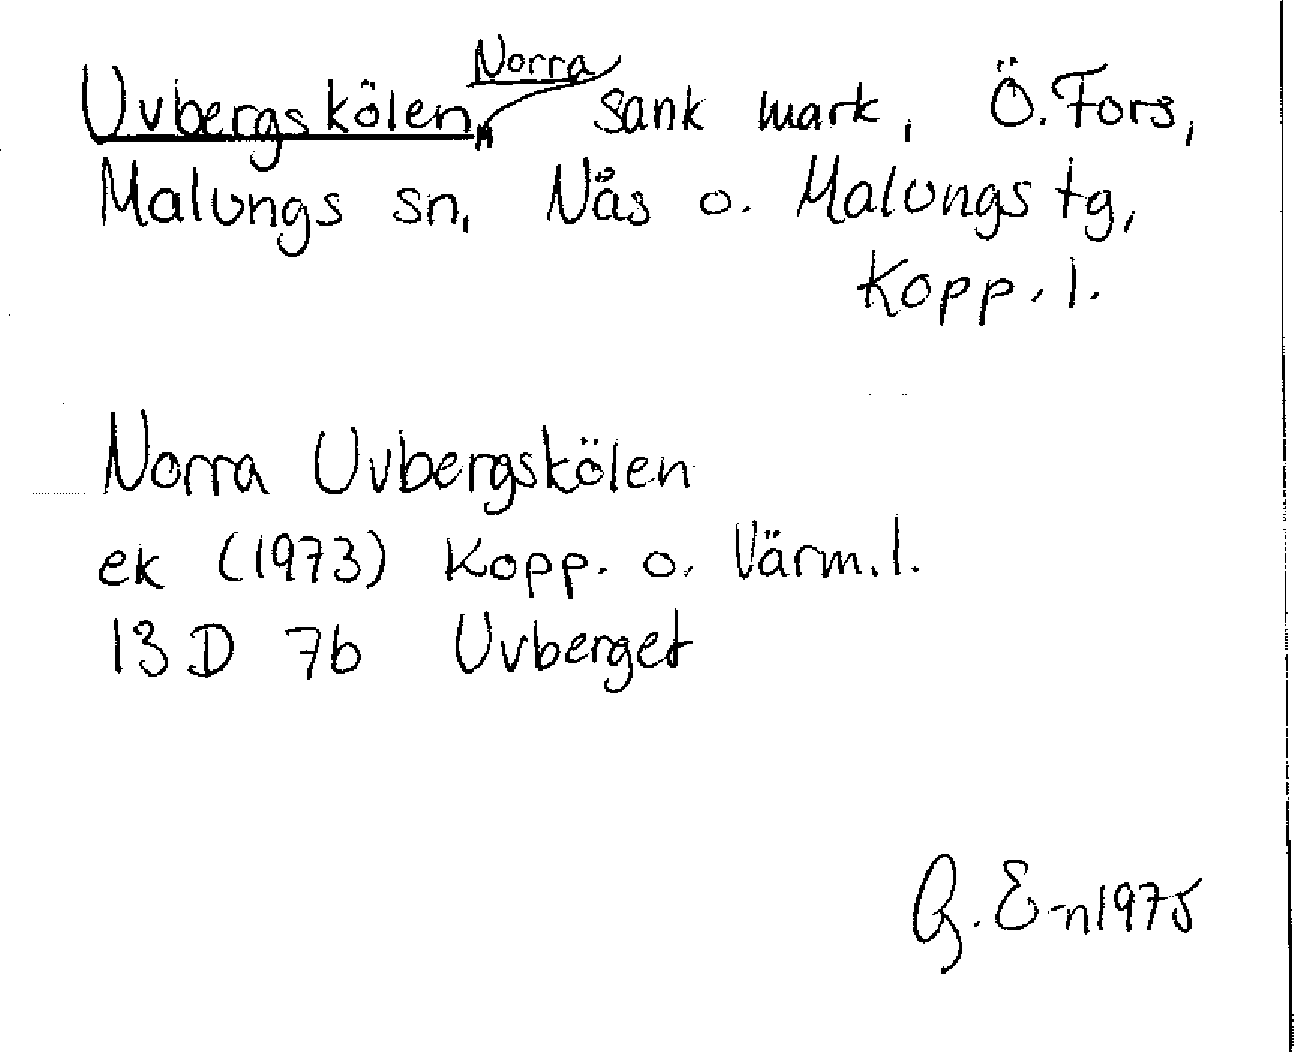 Uvbergskölen, Norra sank mark, Ö. Fors,
Malungs sn, Nås o. Malungs tg,
Kopp. l.
Norra Uvbergskölen
ek (1973) Kopp. o. Värm. l.
13 D 7b Uvberget
G. E-n 1975